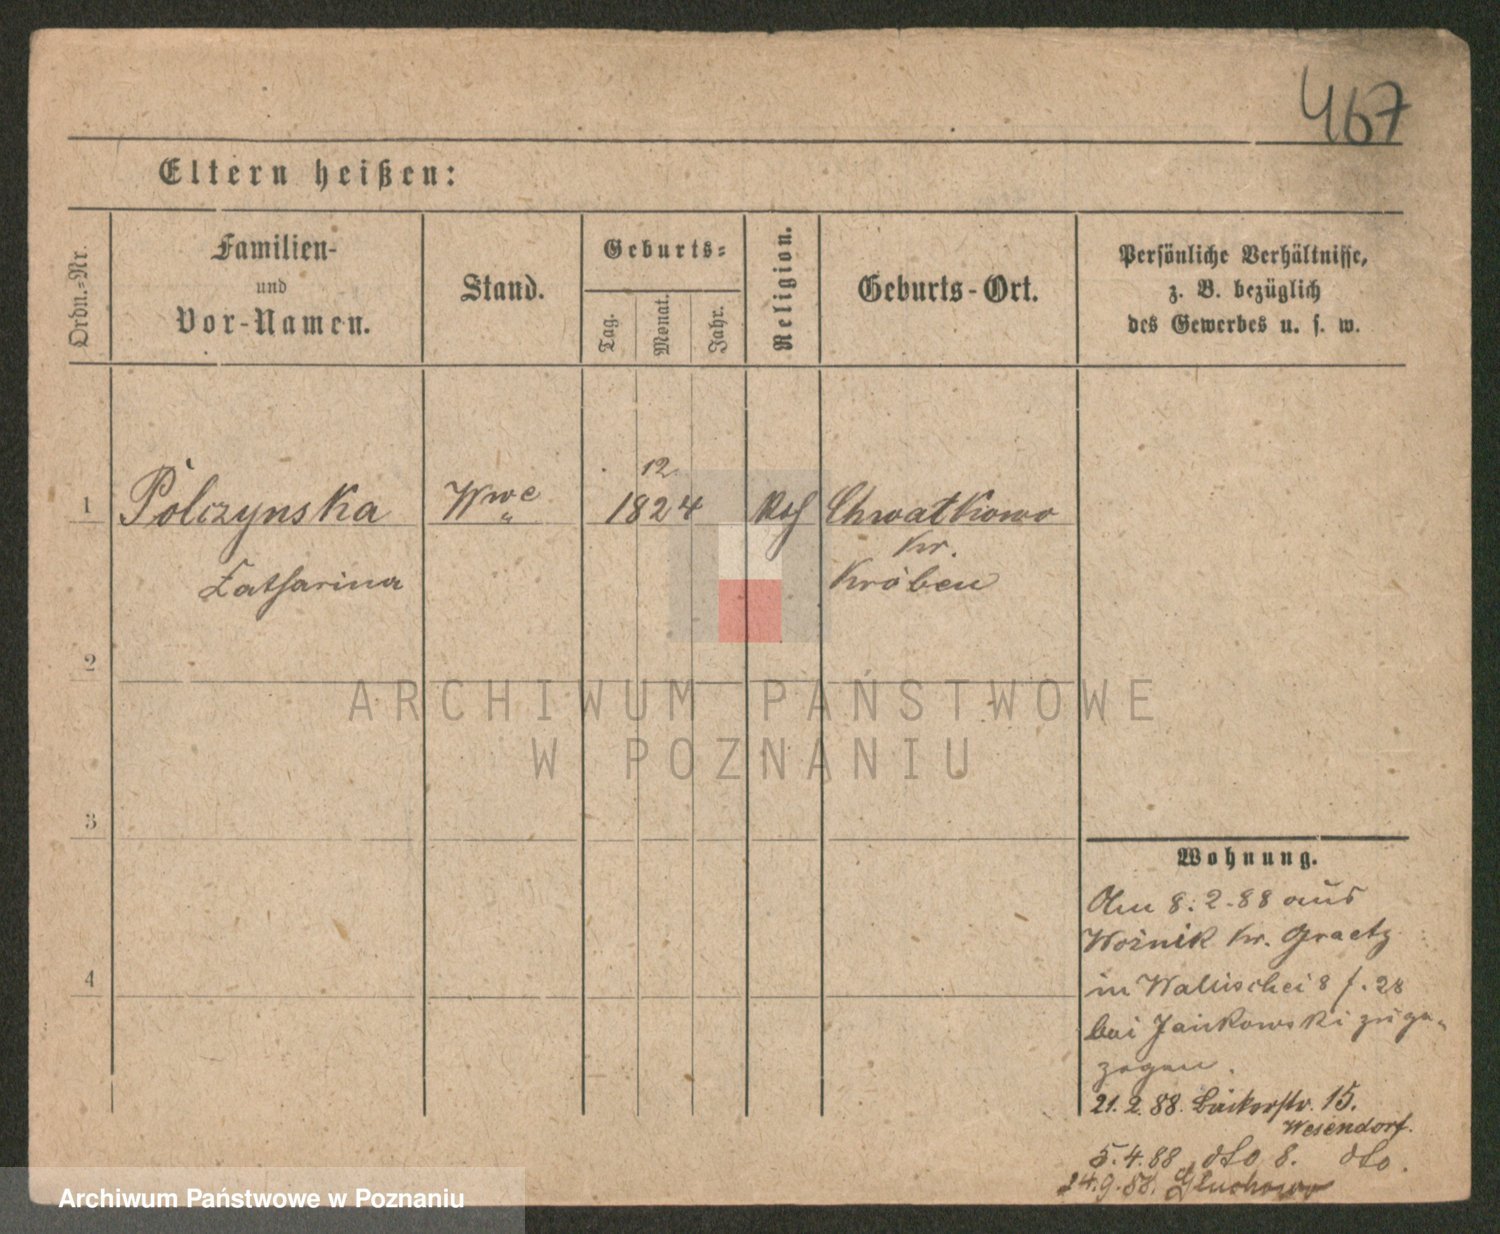 467
Eltern heißen:
Ordn.-Nr.
Familien-
und
Vor-Namen.
Stand.
Geburts-
Tag.
Monat.
Jahr.
Religion.
Geburts-Ort.
Persönliche Verhältnisse,
z. B. bezüglich
des Gewerbes u. s. w.
12.
1 Polczynska Wwe 1824 Chwatkowo
Kr.
Catharina Kröben
2
3
4
Wohnung.
Am 8. 2. 88 aus
Woźnik Kr. Graetz
in Wallischei 8 f. 28
bei Jankowski zuge-
zogen.
21. 2. 88. Bäckerstr. 15.
Wesendorf.
5. 4. 88 dto 8. dto.
24. 9. 88. Gluchowo
ARCHIWUM PAŃSTWOWE
W POZNANIU
Archiwum Państwowe w Poznaniu